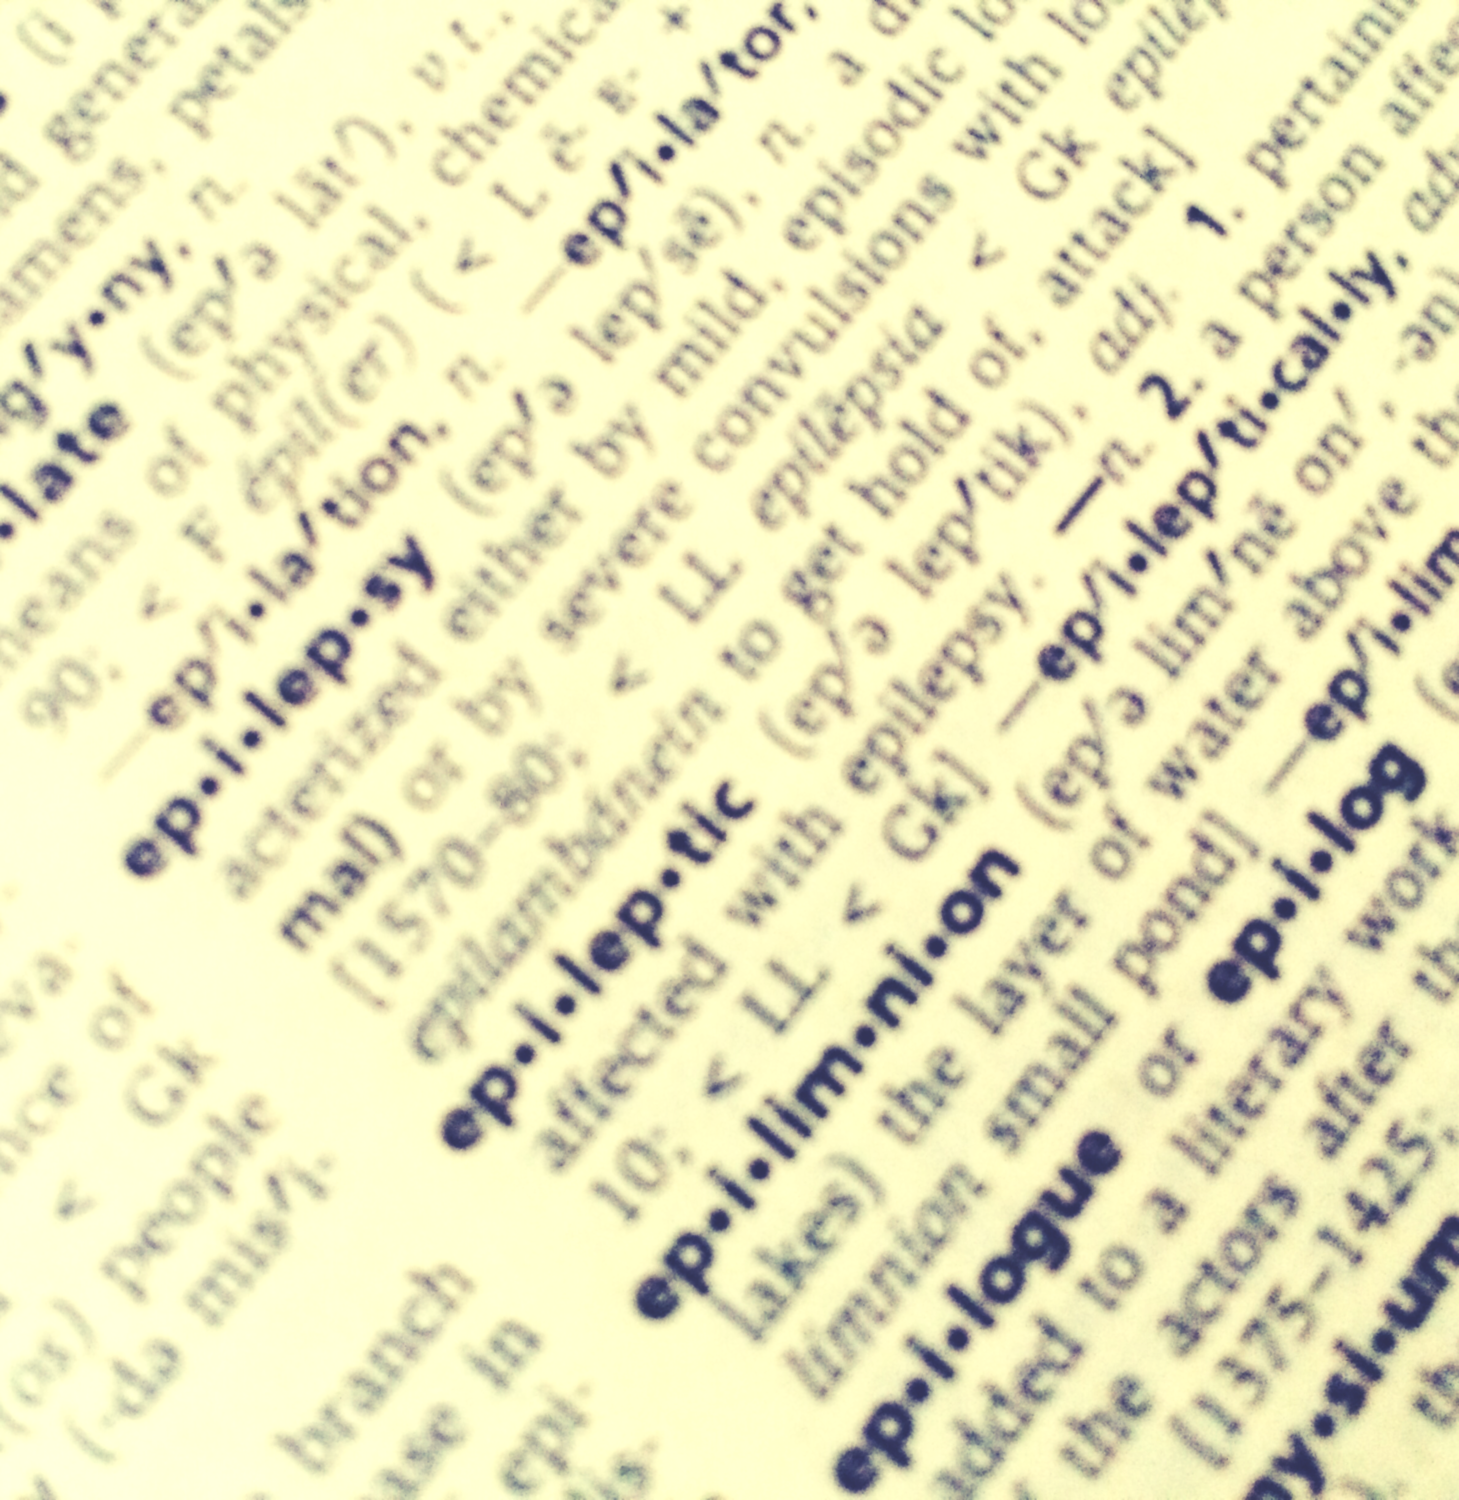 general
petals
amens.
g′y•ny. n.
•late (ep′ə lāt′). v.t.
means of physical, chemica
90; < F épil(er) (< L ē- E- +
—ep′i•la′tion, n. —ep′i•la′tor,
ep•i•lep•sy (ep′ə lep′sē), n. a di
acterized either by mild, episodic lo
mal) or by severe convulsions with lo
(1570–80; < LL epilēpsia < Gk epilēp
epilambánein to get hold of, attack]
ep•i•lep•tic (ep′ə lep′tik), adj. 1. pertainin
affected with epilepsy. —n. 2. a person affe
10; < LL < Gk] —ep′i•lep′ti•cal•ly, adv
ep•i•lim•ni•on (ep′ə lim′nē on′, -ən)
lakes) the layer of water above th
limnion small pond] —ep′i•lim
ep•i•logue or ep•i•log (e
added to a literary work
the actors after th
(1375–1425;
my•si•um
eva-
nce of
< Gk
people
(-də mis′i-
branch
ase in
epi-